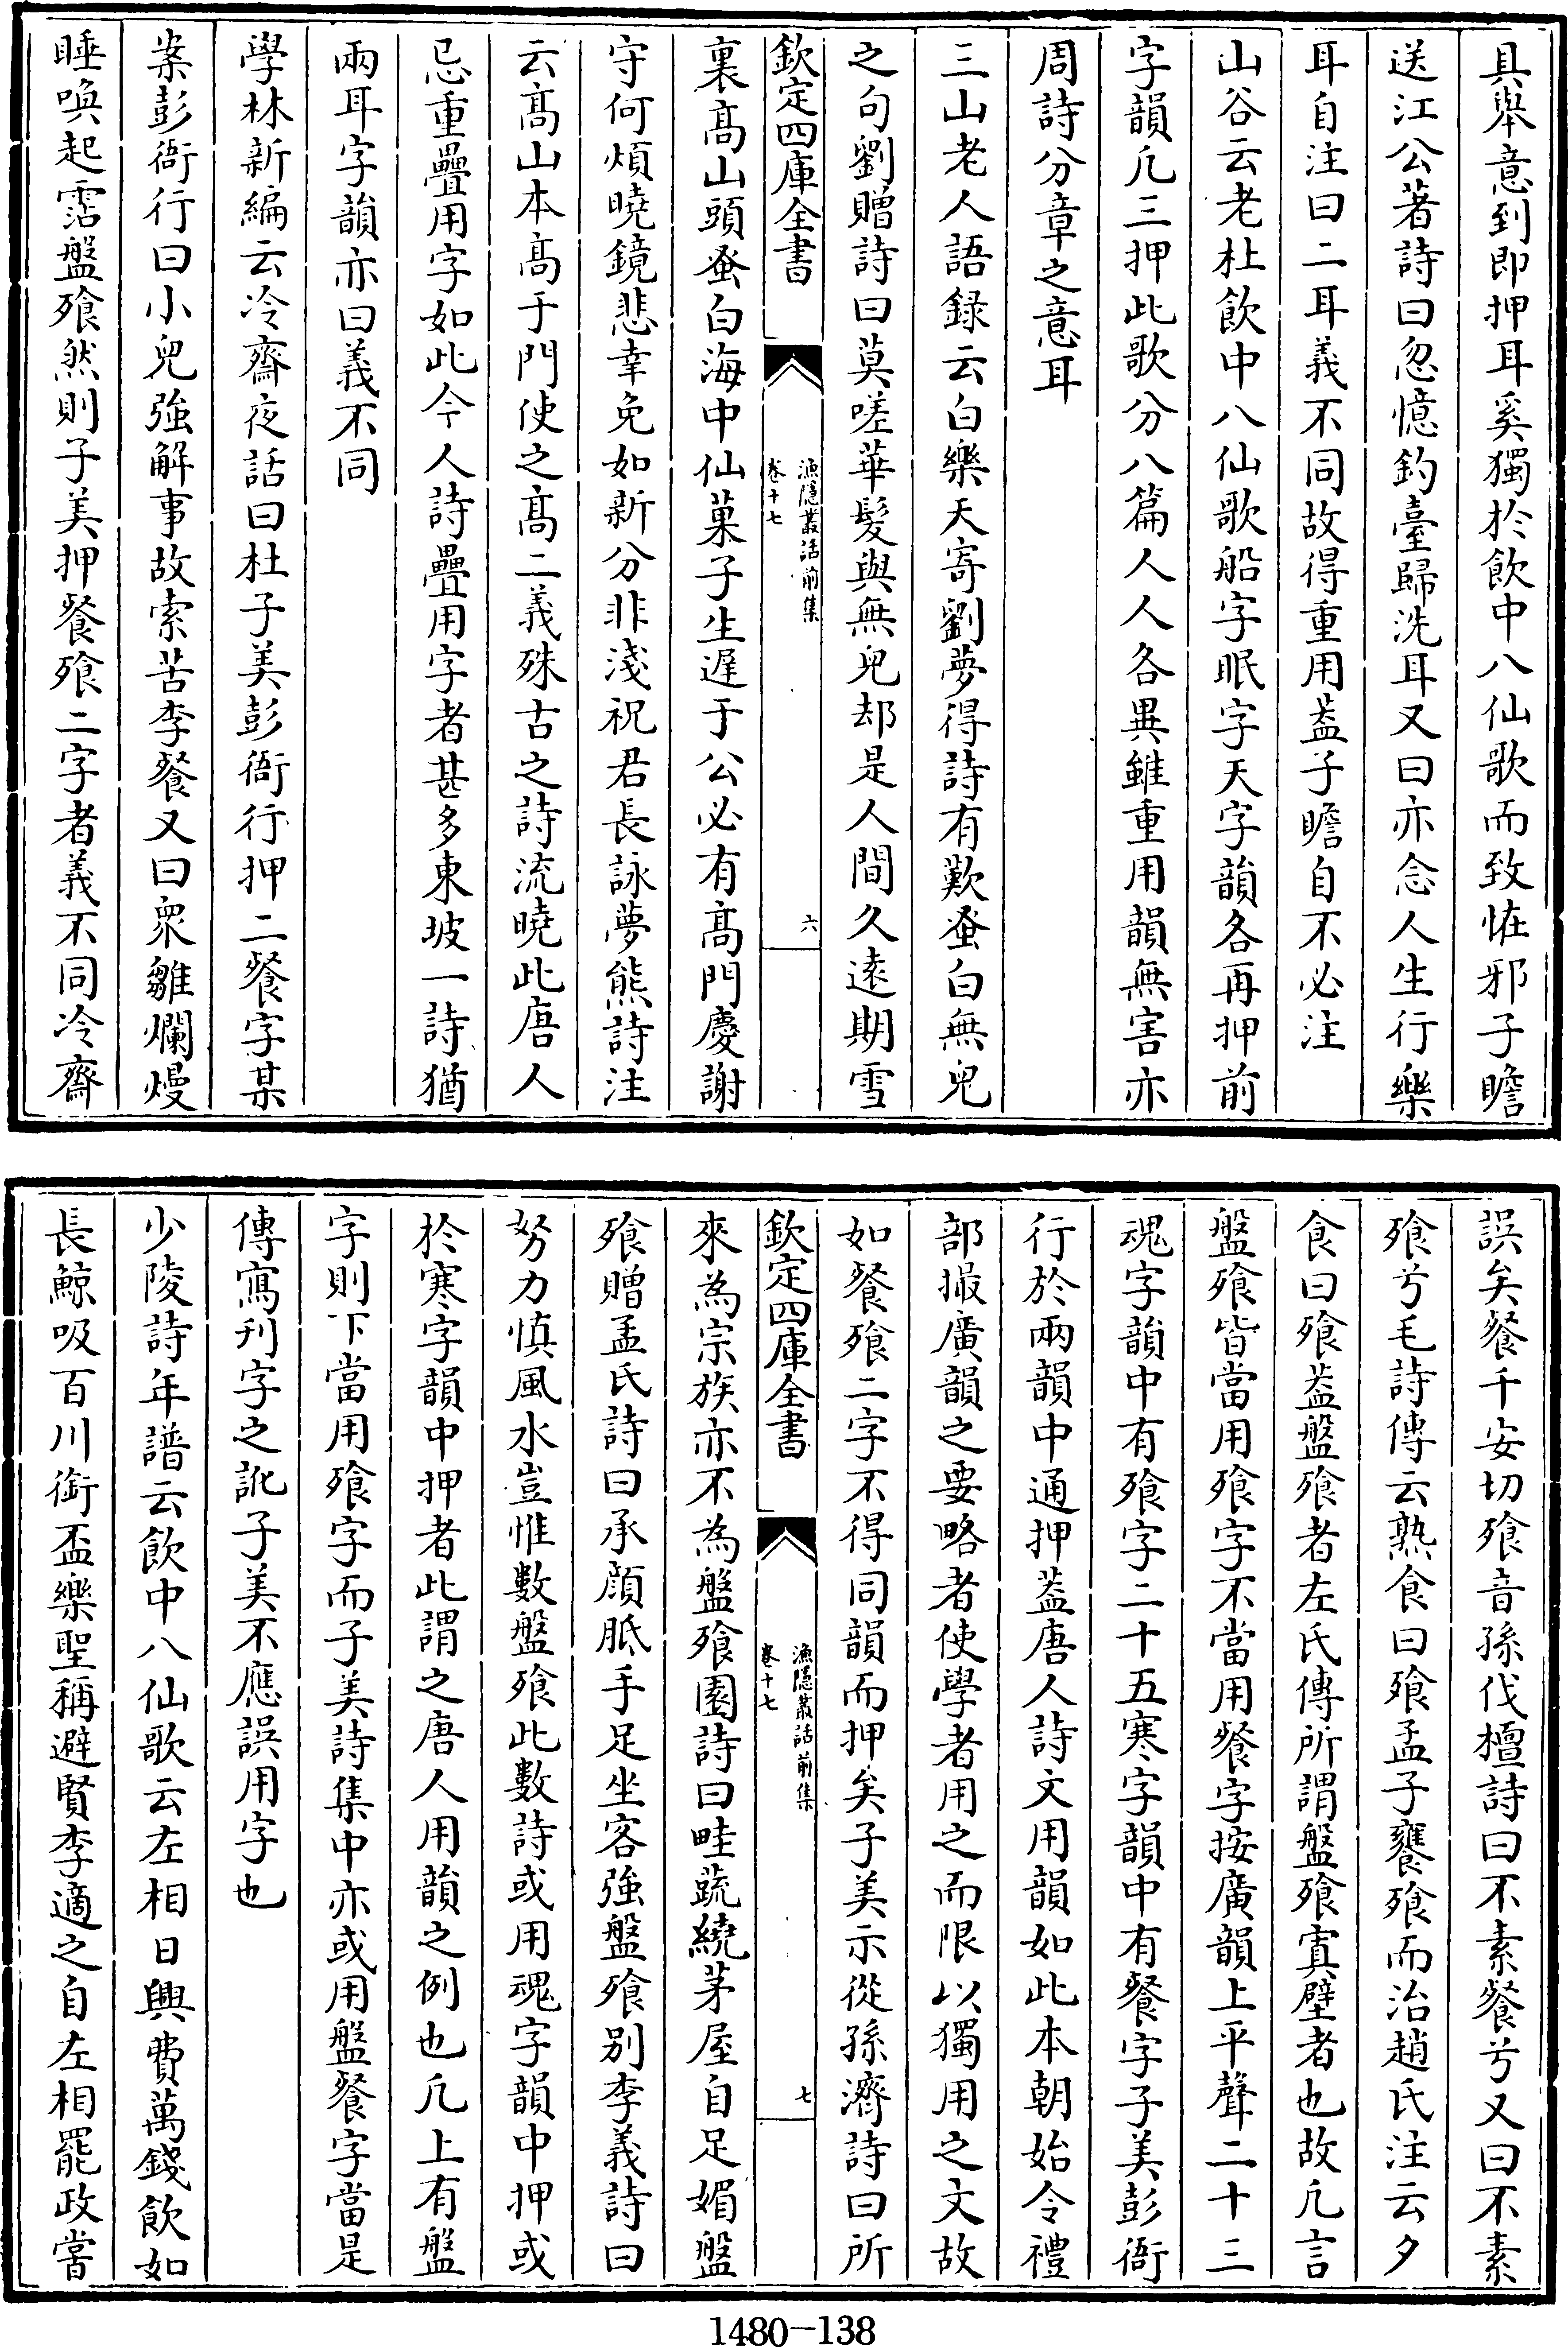 具舉意到即押耳奚獨於飲中八仙歌而致恠邪子瞻
送江公著詩曰忽憶釣臺歸洗耳又曰亦念人生行樂
耳自注曰二耳義不同故得重用葢子瞻自不必注
山谷云老杜飲中八仙歌船字眠字天字韻各再押前
字韻凡三押此歌分八篇人人各異雖重用韻無害亦
周詩分章之意耳
三山老人語録云白樂天寄劉夢得詩有歎蚤白無兒
之句劉贈詩曰莫嗟華髮與無兒却是人間久逺期雪
欽定四庫全書
漁隱叢話前集
卷十七
六
裏髙山頭蚤白海中仙菓子生遲于公必有髙門慶謝
守何煩曉鏡悲幸免如新分非淺祝君長詠夢熊詩注
云髙山本髙于門使之髙二義殊古之詩流曉此唐人
忌重疊用字如此今人詩疊用字者甚多東坡一詩猶
兩耳字韻亦曰義不同
學林新編云冷齋夜話曰杜子美彭衙行押二餐字某
案彭衙行曰小兒強解事故索苦李餐又曰衆雛爛熳
睡喚起霑盤飱然則子美押餐飱二字者義不同冷齋
誤矣餐千安切飱音孫伐檀詩曰不素餐兮又曰不素
飱兮毛詩傳云熟食曰飱孟子饔飱而治趙氏注云夕
食曰飱葢盤飱者左氏傳所謂盤飱寘璧者也故凡言
盤飱皆當用飱字不當用餐字按廣韻上平聲二十三
魂字韻中有飱字二十五寒字韻中有餐字子美彭衙
行於兩韻中通押葢唐人詩文用韻如此本朝始令禮
部撮廣韻之要略者使學者用之而限以獨用之文故
如餐飱二字不得同韻而押矣子美示從孫濟詩曰所
欽定四庫全書
漁隱叢話前集
卷十七
七
來為宗族亦不為盤飱園詩曰畦蔬繞茅屋自足媚盤
飱贈孟氏詩曰承顔胝手足坐客強盤飱别李義詩曰
努力慎風水豈惟數盤飱此數詩或用魂字韻中押或
於寒字韻中押者此謂之唐人用韻之例也凡上有盤
字則下當用飱字而子美詩集中亦或用盤餐字當是
傳寫刋字之訛子美不應誤用字也
少陵詩年譜云飲中八仙歌云左相日興費萬錢飲如
長鯨吸百川銜盃樂聖稱避賢李適之自左相罷政嘗
1480—138